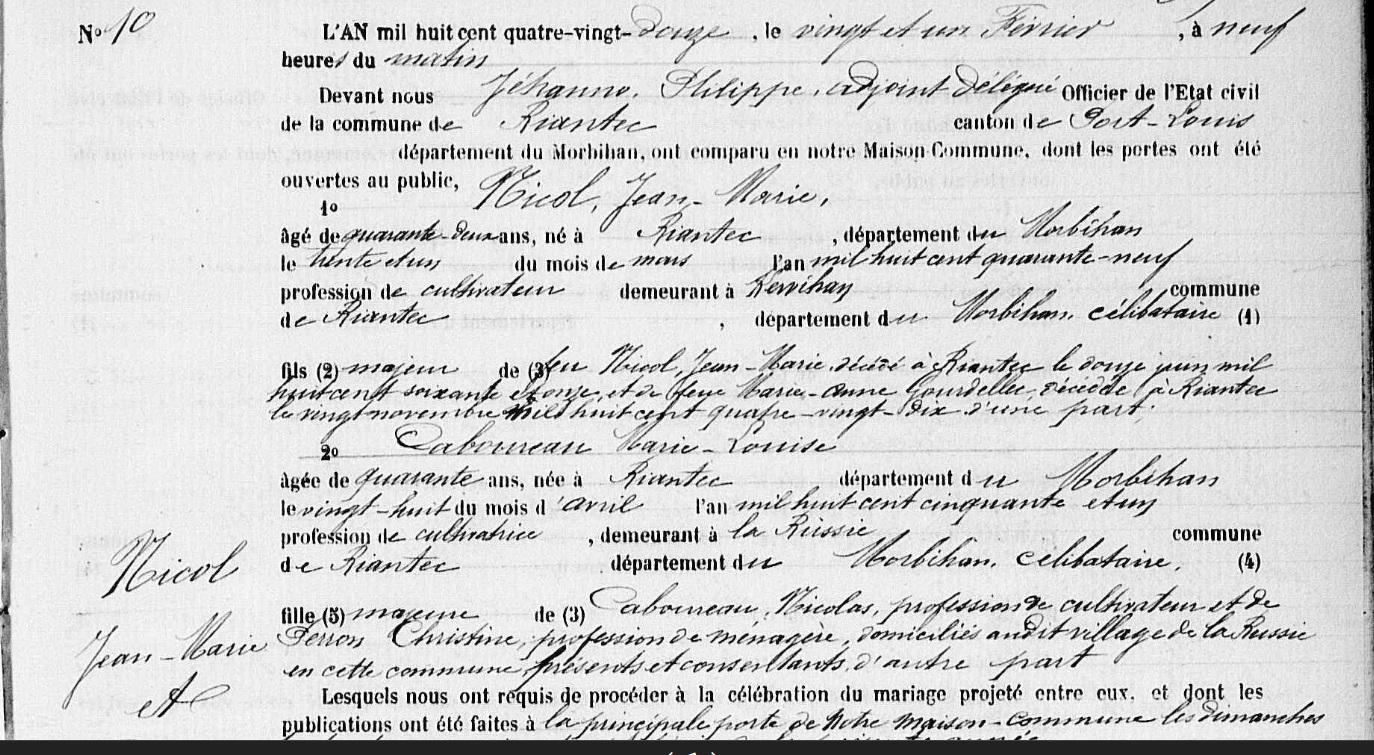 N° 10
L'AN mil huit cent quatre-vingt-douze, le vingt et un Février, à neuf
heures du matin
Devant nous Jéhanno, Philippe, adjoint délégué Officier de l'Etat civil
de la commune de Riantec canton de Port-Louis
département du Morbihan, ont comparu en notre Maison-Commune, dont les portes ont été
ouvertes au public,
1° Nicol, Jean-Marie,
âgé de quarante-deux ans, né à Riantec, département du Morbihan
le trente et un du mois de mars l'an mil huit cent quarante-neuf
profession de cultivateur demeurant à Kervihan commune
de Riantec, département du Morbihan, célibataire (1)
fils (2) majeur de (3) feu Nicol, Jean-Marie, décédé à Riantec le douze juin mil
huit cent soixante et onze, et de feue Marie-Anne Gourdellec, décédée à Riantec
le vingt novembre mil huit cent quatre-vingt-dix d'une part;
2° Caboureau Marie-Louise
âgée de quarante ans, née à Riantec département du Morbihan
le vingt-huit du mois d'avril l'an mil huit cent cinquante et un
profession de cultivatrice, demeurant à la Russie commune
de Riantec département du Morbihan, célibataire, (4)
fille (5) majeure de (3) Caboureau, Nicolas, profession de cultivateur et de
Perron Christine, profession de ménagère, domiciliés audit village de la Russie
en cette commune, présents et consentants, d'autre part
Lesquels nous ont requis de procéder à la célébration du mariage projeté entre eux, et dont les
publications ont été faites à la principale porte de notre maison-commune les dimanches
Nicol
Jean-Marie
et C